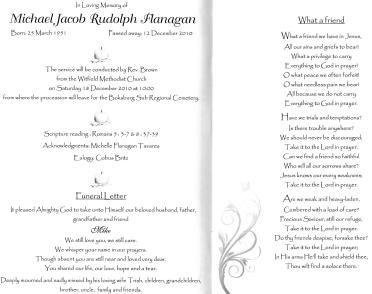 In Loving Memory of
Michael Jacob Rudolph Flanagan
Born: 25 March 1951 Passed away: 12 December 2010
The service will be conducted by Rev. Brown
from the Witfield Methodist Church
on Saturday 18 December 2010 at 10:00
from where the procession will leave for the Boksburg Sub Regional Cemetery.
Scripture reading: Romans 5: 3-7 & 8 : 37-39
Acknowledgments: Michelle Flanagan Tavares
Eulogy: Cobus Britz
Funeral Letter
It pleased Almighty God to take unto Himself our beloved husband, father,
grandfather and friend
Mike
We still love you, we still care.
We whisper your name in our prayers.
Though absent you are still near and loved very dear.
You shared our life, our hope and a tear.
Deeply mourned and sadly missed by his loving wife Trish, children, grandchildren,
brother, uncle, family and friends.
What a friend
What a friend we have in Jesus,
All our sins and griefs to bear!
What a privilege to carry
Everything to God in prayer!
O what peace we often forfeit!
O what needless pain we bear!
All because we do not carry
Everything to God in prayer.
Have we trials and temptations?
Is there trouble anywhere?
We should never be discouraged;
Take it to the Lord in prayer.
Can we find a friend so faithful
Who will all our sorrows share?
Jesus knows our every weakness,
Take it to the Lord in prayer.
Are we weak and heavy-laden,
Cumbered with a load of care?
Precious Saviour, still our refuge,
Take it to the Lord in prayer.
Do thy friends despise, forsake thee?
Take it to the Lord in prayer;
In His arms He'll take and shield thee,
Thou wilt find a solace there.